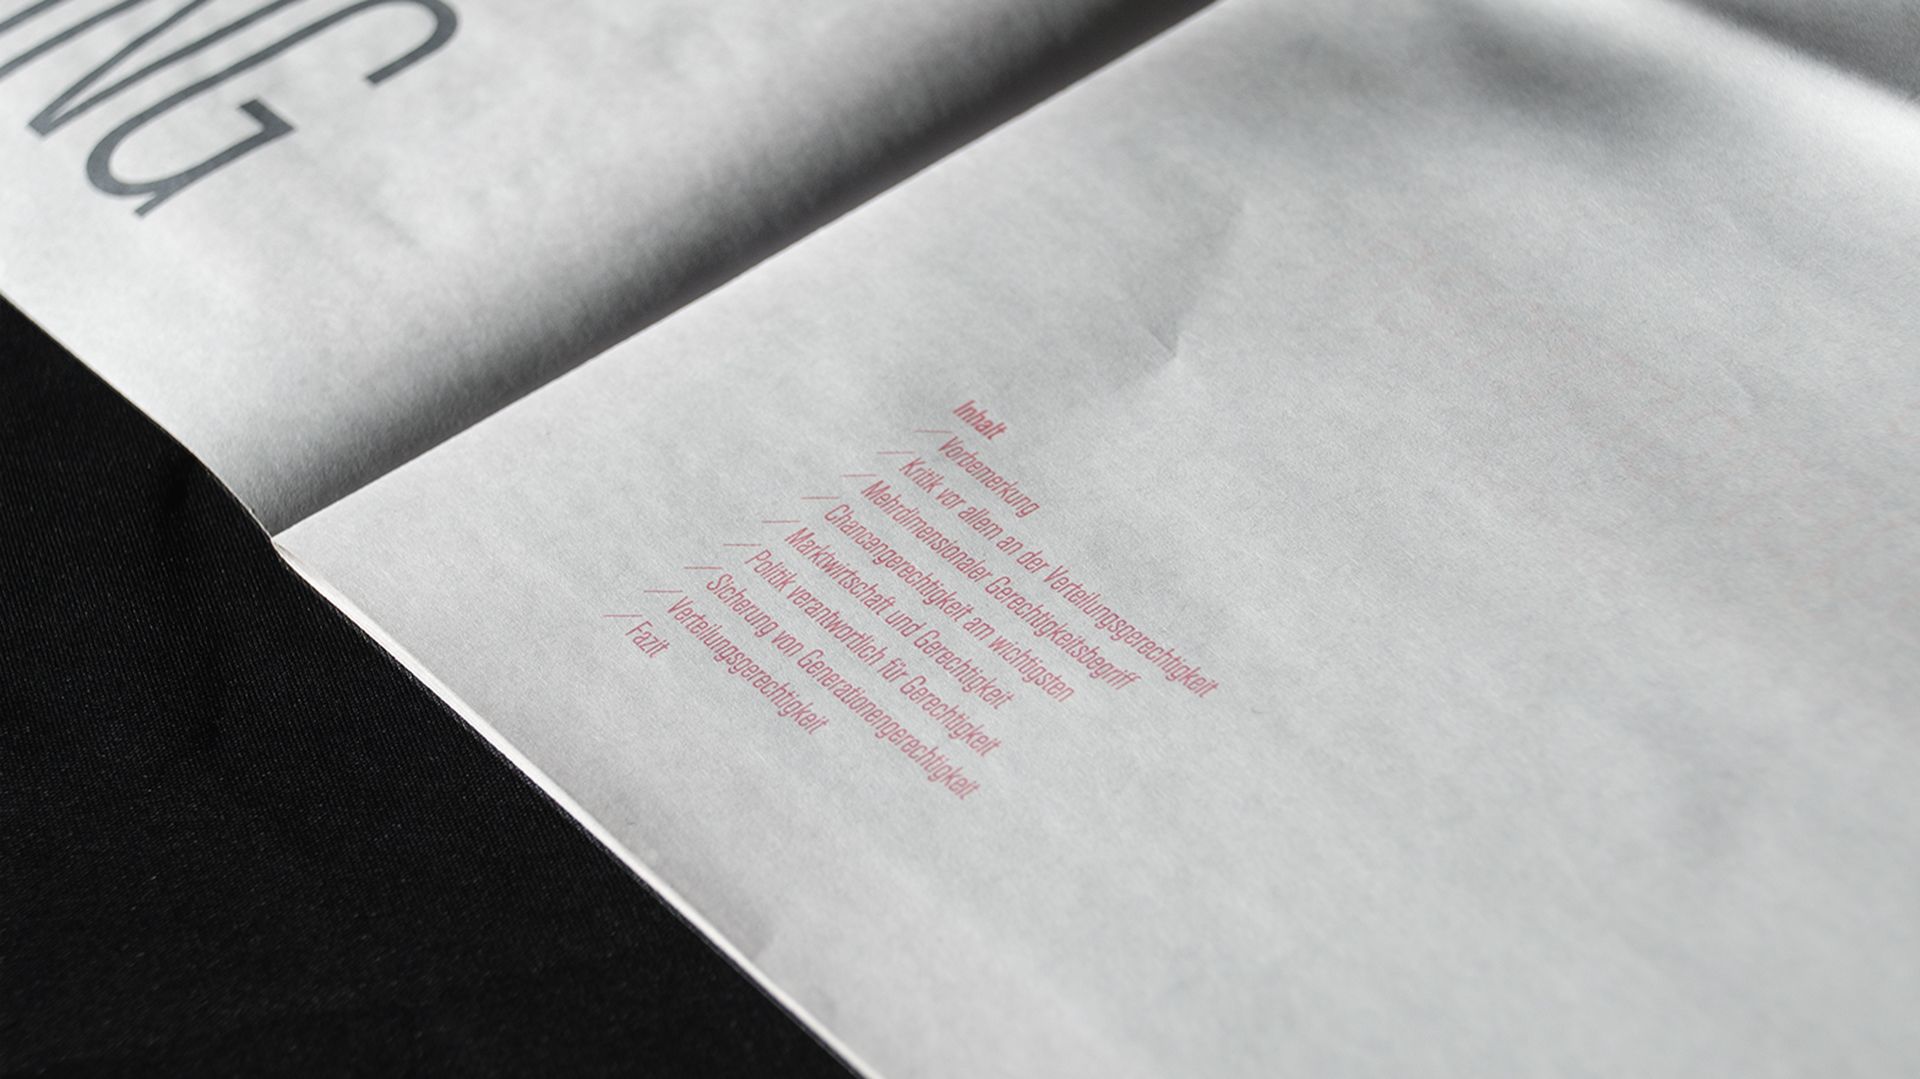 NG
Inhalt
/ Vorbemerkung
/ Kritik vor allem an der Verteilungsgerechtigkeit
/ Mehrdimensionaler Gerechtigkeitsbegriff
/ Chancengerechtigkeit am wichtigsten
/ Marktwirtschaft und Gerechtigkeit
/ Politik verantwortlich für Gerechtigkeit
/ Sicherung von Generationengerechtigkeit
/ Verteilungsgerechtigkeit
/ Fazit